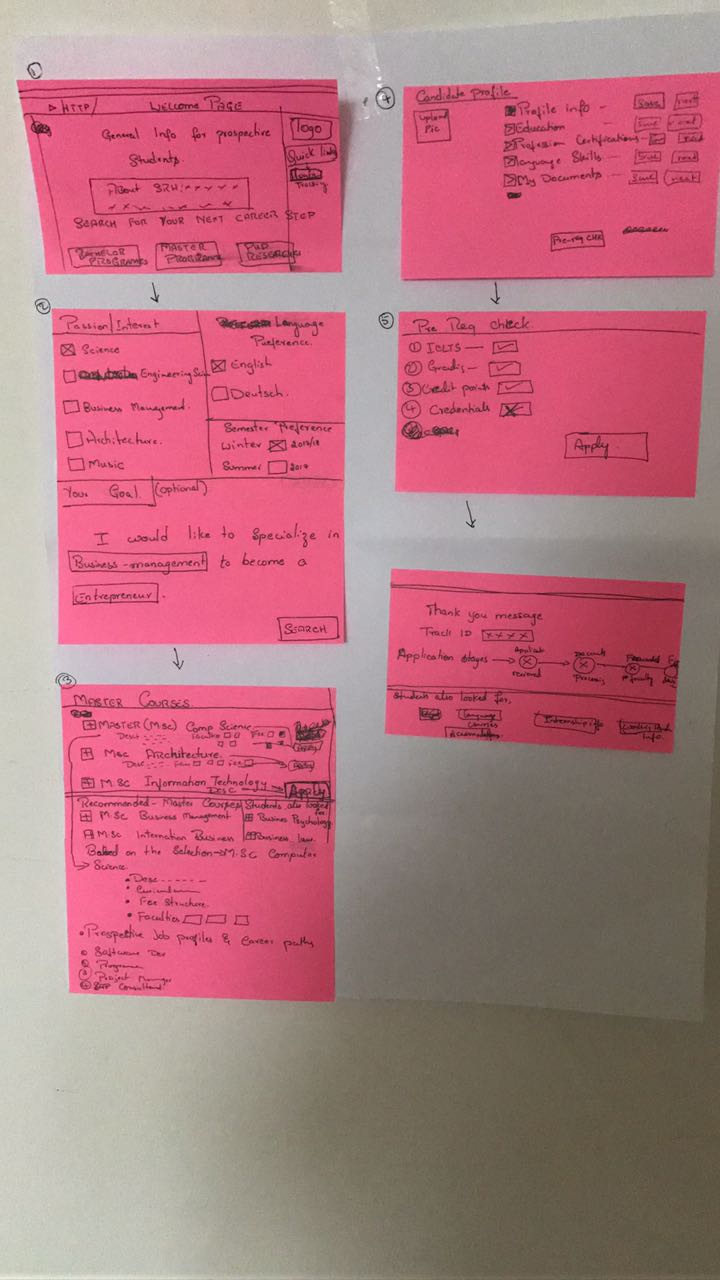 ①
▷ HTTP/ WELCOME PAGE
General Info for prospective
Students.
logo
Quick links
Tracking
About SRH: xxxxx
SEARCH FOR YOUR NEXT CAREER STEP
BACHELOR PROGRAMES
MASTER PROGRAME
PhD RESEARCHES
②
Passion/Interest
Science
Engineering
Business Management.
Architecture.
Music
Language
Preference.
English
Deutsch.
Semester Preference
Winter 2017/18
Summer 2017
Your Goal (optional)
I would like to Specialize in
Business-management to become a
Entrepreneur.
SEARCH
③
MASTER COURSES.
MASTER (MSc) Comp Science
Desc
MSc Architecture.
Desc
M.SC Information Technology
Desc
APPLY
Recommended- Master Courses
Students also looked
for
M.SC Business Management
Busines Psychology
M.SC Internation Business
Business law
Based on the Selection → M.SC Computor
Science.
• Desc
• Curriculum
• Fee Structure.
• Faculties
• Prospective Job profiles & Career paths
① Software Dev
②
③ Project Manager
④ SAP Consultant
④
Candidate Profile
Upload
Pic
Profile Info - Save next
Education - Save next
Profession Certifications - next
Language Skills - Save next
My Documents - Save next
Pre-req CHK
⑤
Pre Req check.
① IELTS -
② Grading -
③ Credit points
④ Credentials
Apply.
Thank you message
Track ID xxxx
Application stages
received
Process
faculty
Students also looked for,
Language
Courses
Accomodation
Internship info
Info.